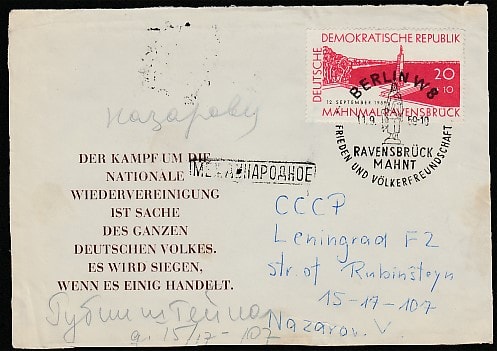 DEUTSCHE
DEMOKRATISCHE REPUBLIK
20
+10
12. SEPTEMBER 1959
MAHNMAL RAVENSBRÜCK
BERLIN W8
11.9. 59-10
RAVENSBRÜCK
MAHNT
FRIEDEN UND VÖLKERFREUNDSCHAFT
Назарову
DER KAMPF UM DIE
NATIONALE
WIEDERVEREINIGUNG
IST SACHE
DES GANZEN
DEUTSCHEN VOLKES.
ES WIRD SIEGEN,
WENN ES EINIG HANDELT.
МЕЖДУНАРОДНОЕ
CCCP
Leningrad F2
str. of Rubinsteyn
15-17-107
Nazarov. V.
д. 15/17-107